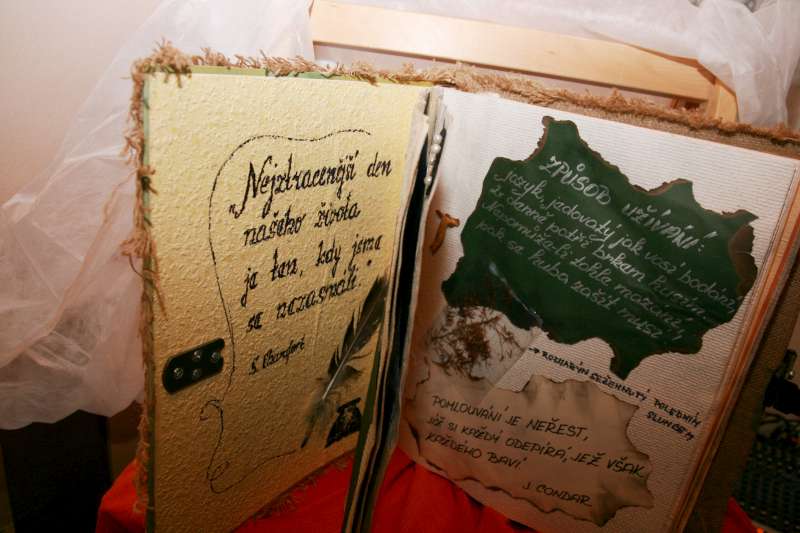 „Nejztracenější den
našeho života
je ten, kdy jsme
se nezasmáli."
S. Chamfort
ZPŮSOB UŽÍVÁNÍ:
Jazyk, jedovatý jak vosí bodání
z dásně potři brkem
Nepomůže-li tohle mazání,
pak se huba zašít musí.
→ ROZHADÝM SEŽEHNUTÝ POLEDNÍM
SLUNCEM
POMLOUVÁNÍ JE NEŘEST,
JÍŽ SI KAŽDÝ ODEPÍRÁ, JEŽ VŠAK
KAŽDÉHO BAVÍ
J. CONDAR